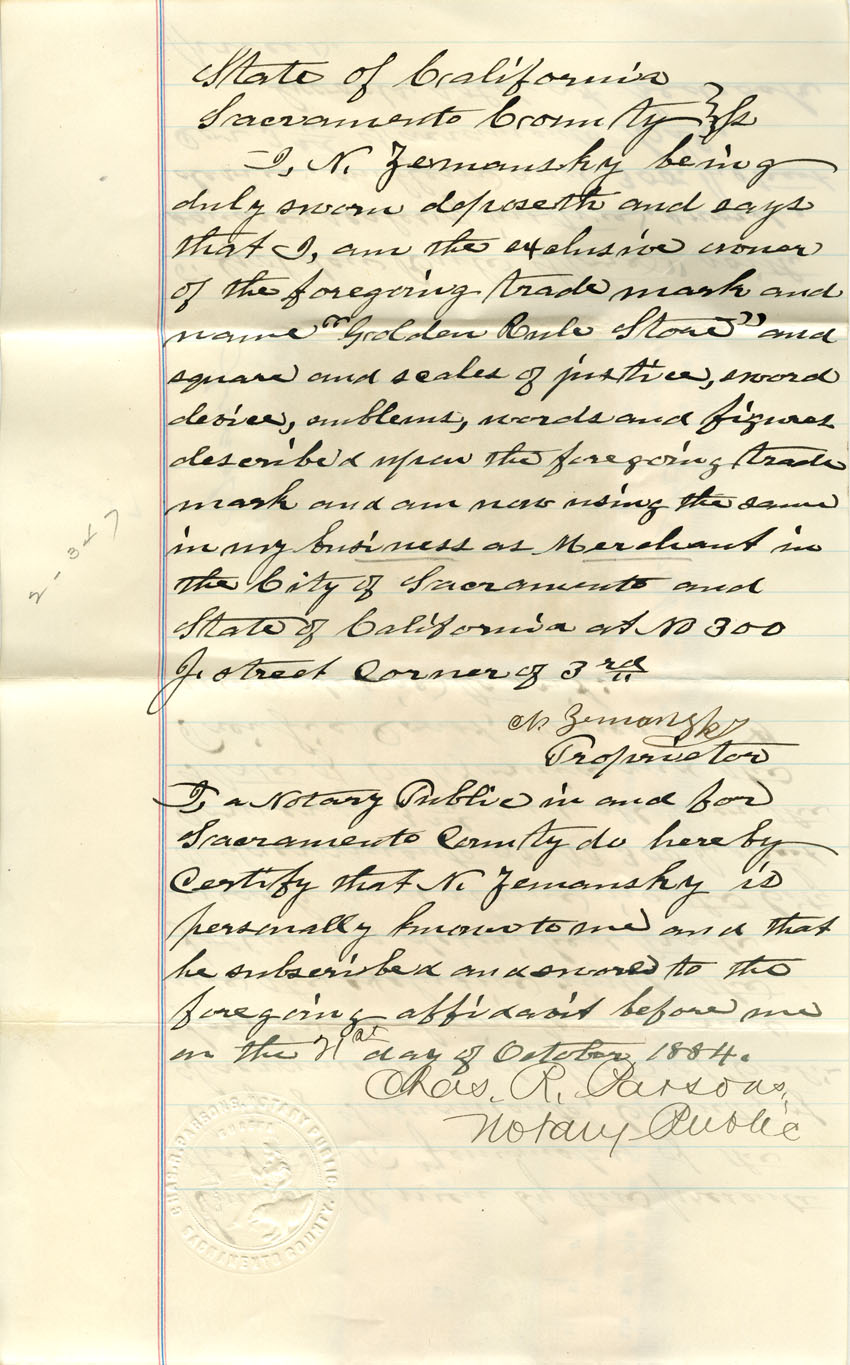 State of California
Sacramento County } ss
I, N. Zemansky being
duly sworn deposeth and says
that I, am the exclusive owner
of the foregoing trade mark and
name "Golden Rule Store" and
square and scales of justice, sword
device, emblems, words and figures
described upon the foregoing trade
mark and am now using the same
in my business as Merchant in
the City of Sacramento and
State of California at No 300
J. street Corner of 3rd
N. Zemansky
Proprietor
I, a Notary Public in and for
Sacramento County do hereby
Certify that N. Zemansky is
personally known to me and that
he subscribed and swore to the
foregoing affidavit before me
on the 21st day of October, 1884.
Chas. R. Parsons,
Notary Public
CHAS. R. PARSONS, NOTARY PUBLIC
EUREKA
SACRAMENTO COUNTY.